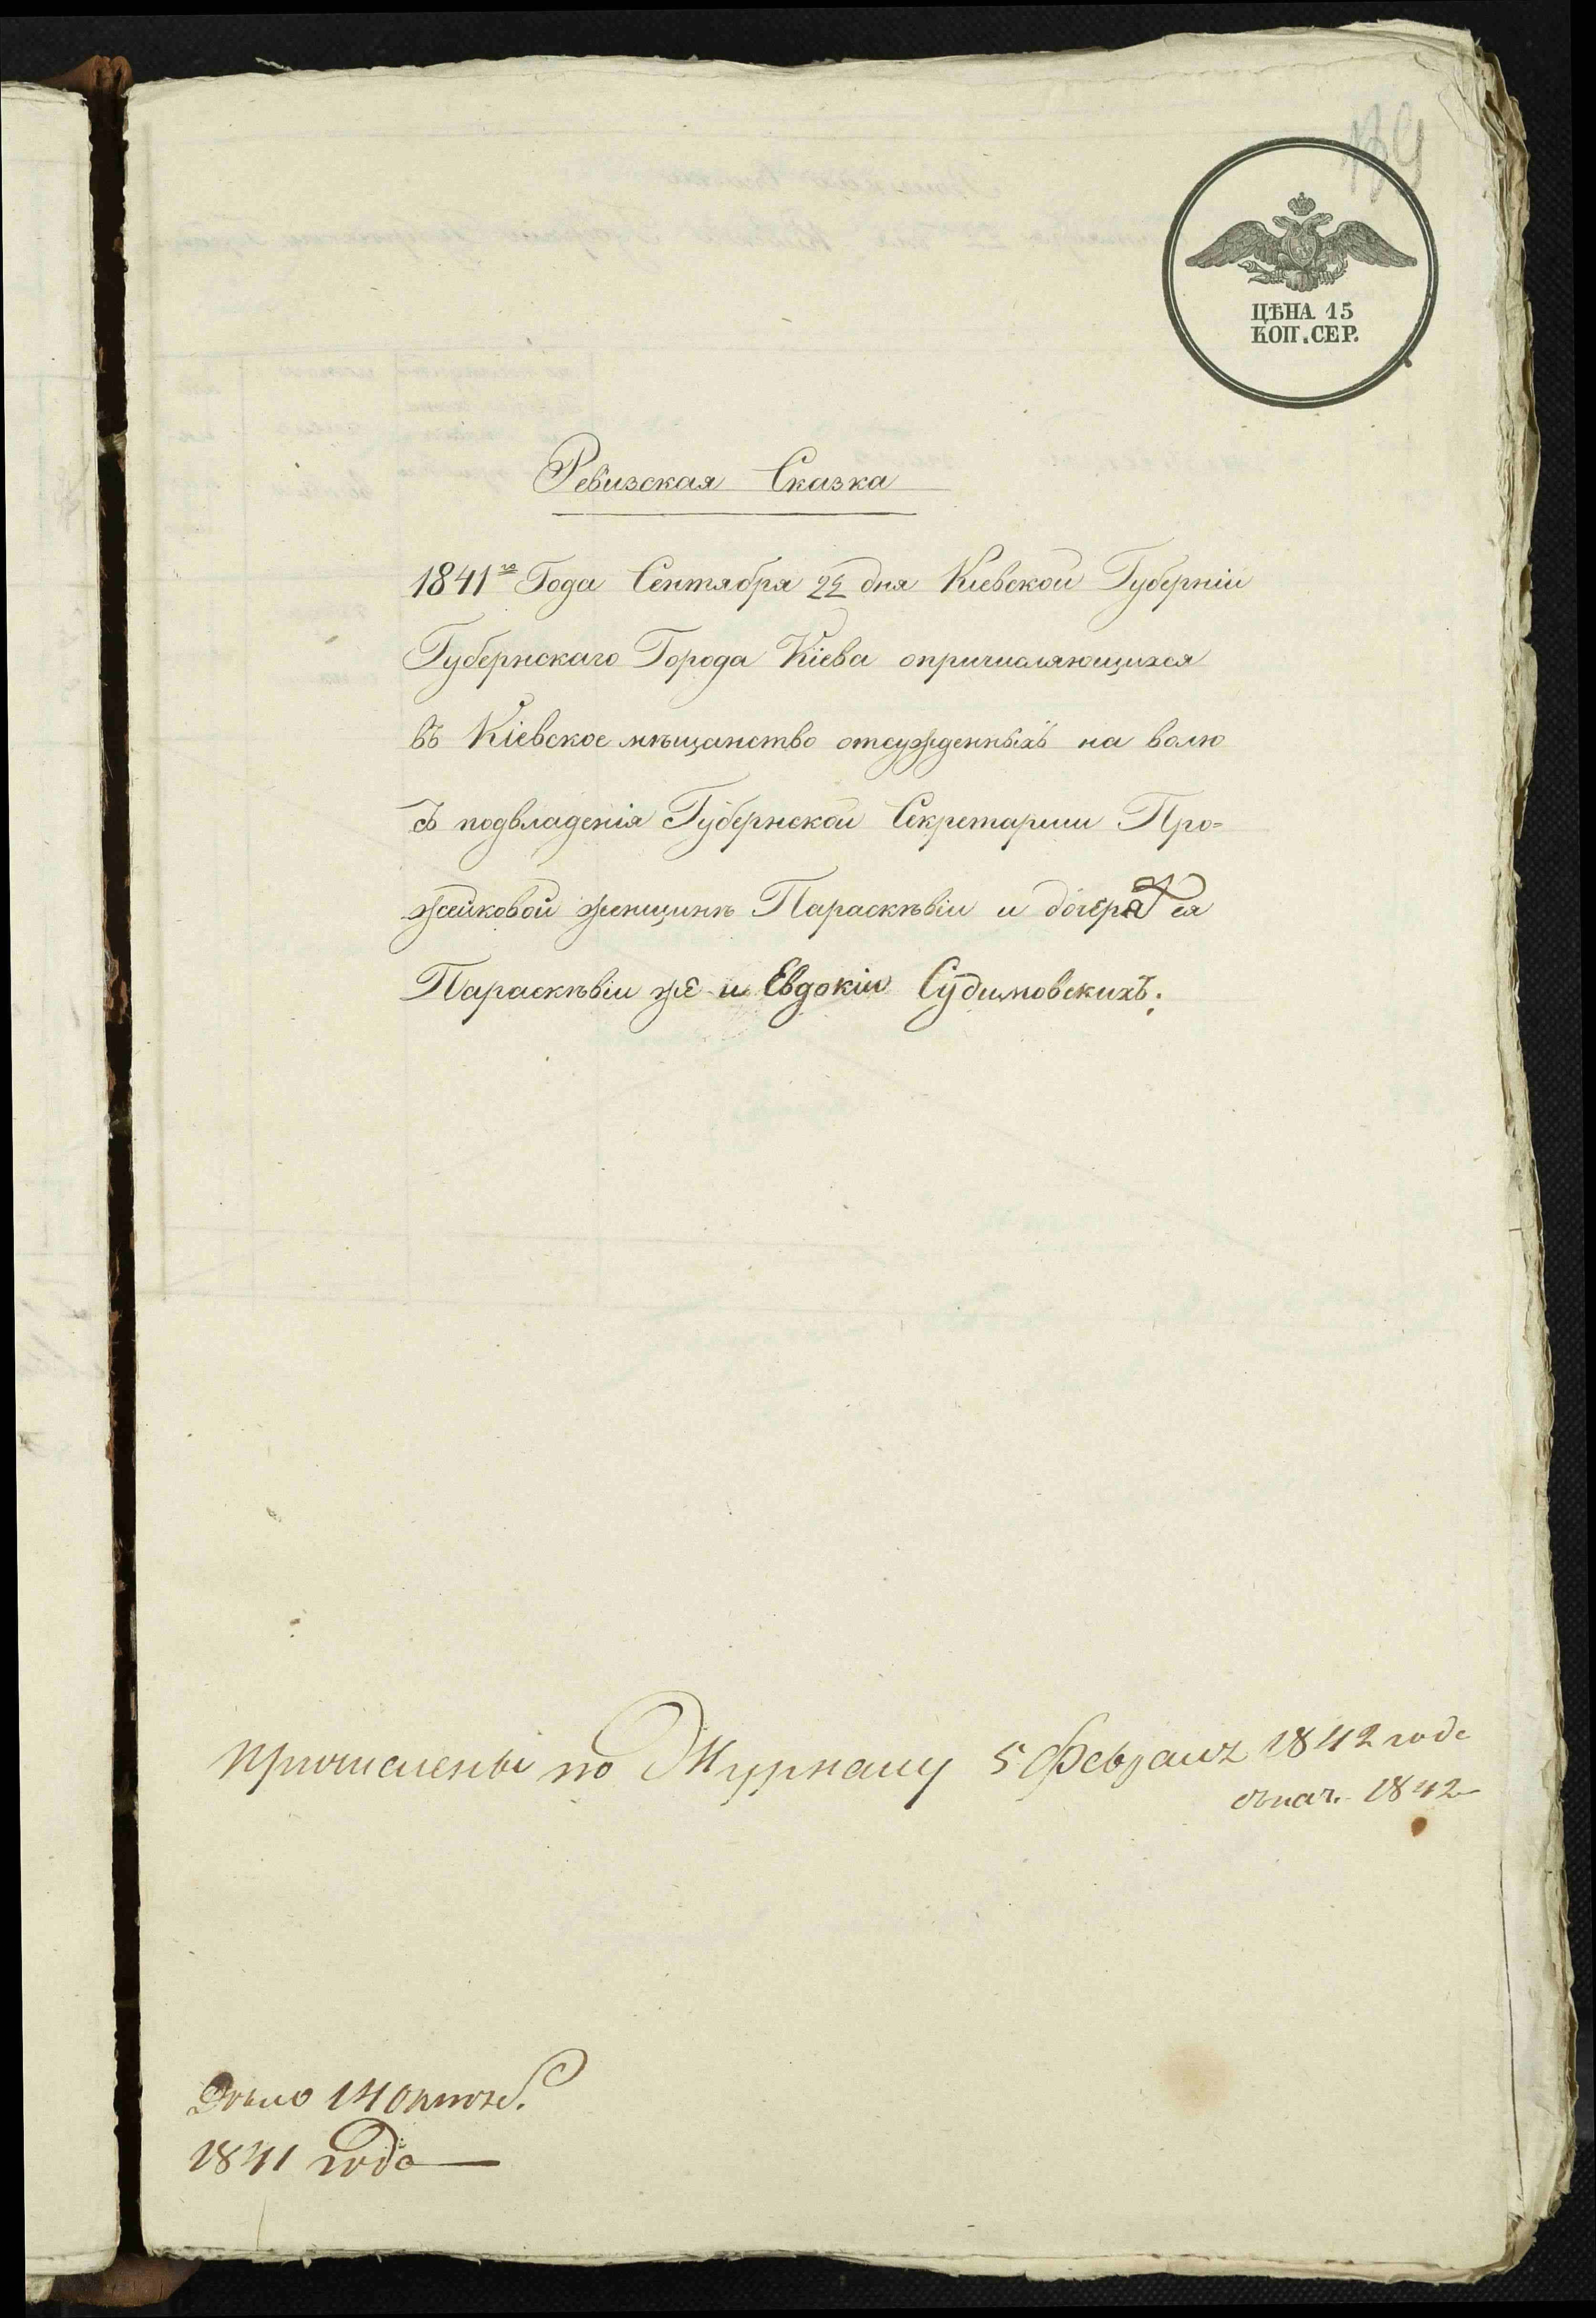 139
ЦѢНА 15
КОП. СЕР.
Ревизская Сказка
1841го Года Сентября 22 дня Киевской Губерніи
Губернскаго Города Кіева опричисляющихся
въ Кіевское мѣщанство отсужденныхъ на волю
съ подвладенія Губернской Секретарши Про=
жейковой женщинѣ Параскѣвіи и дочеря ея
Параскѣвіи же и Евдокіи Судимовскихъ.
Причислены по Журналу 5 Февраля 1842 года
съ нач. 1842
Дѣло 14 октяб.
1841 года